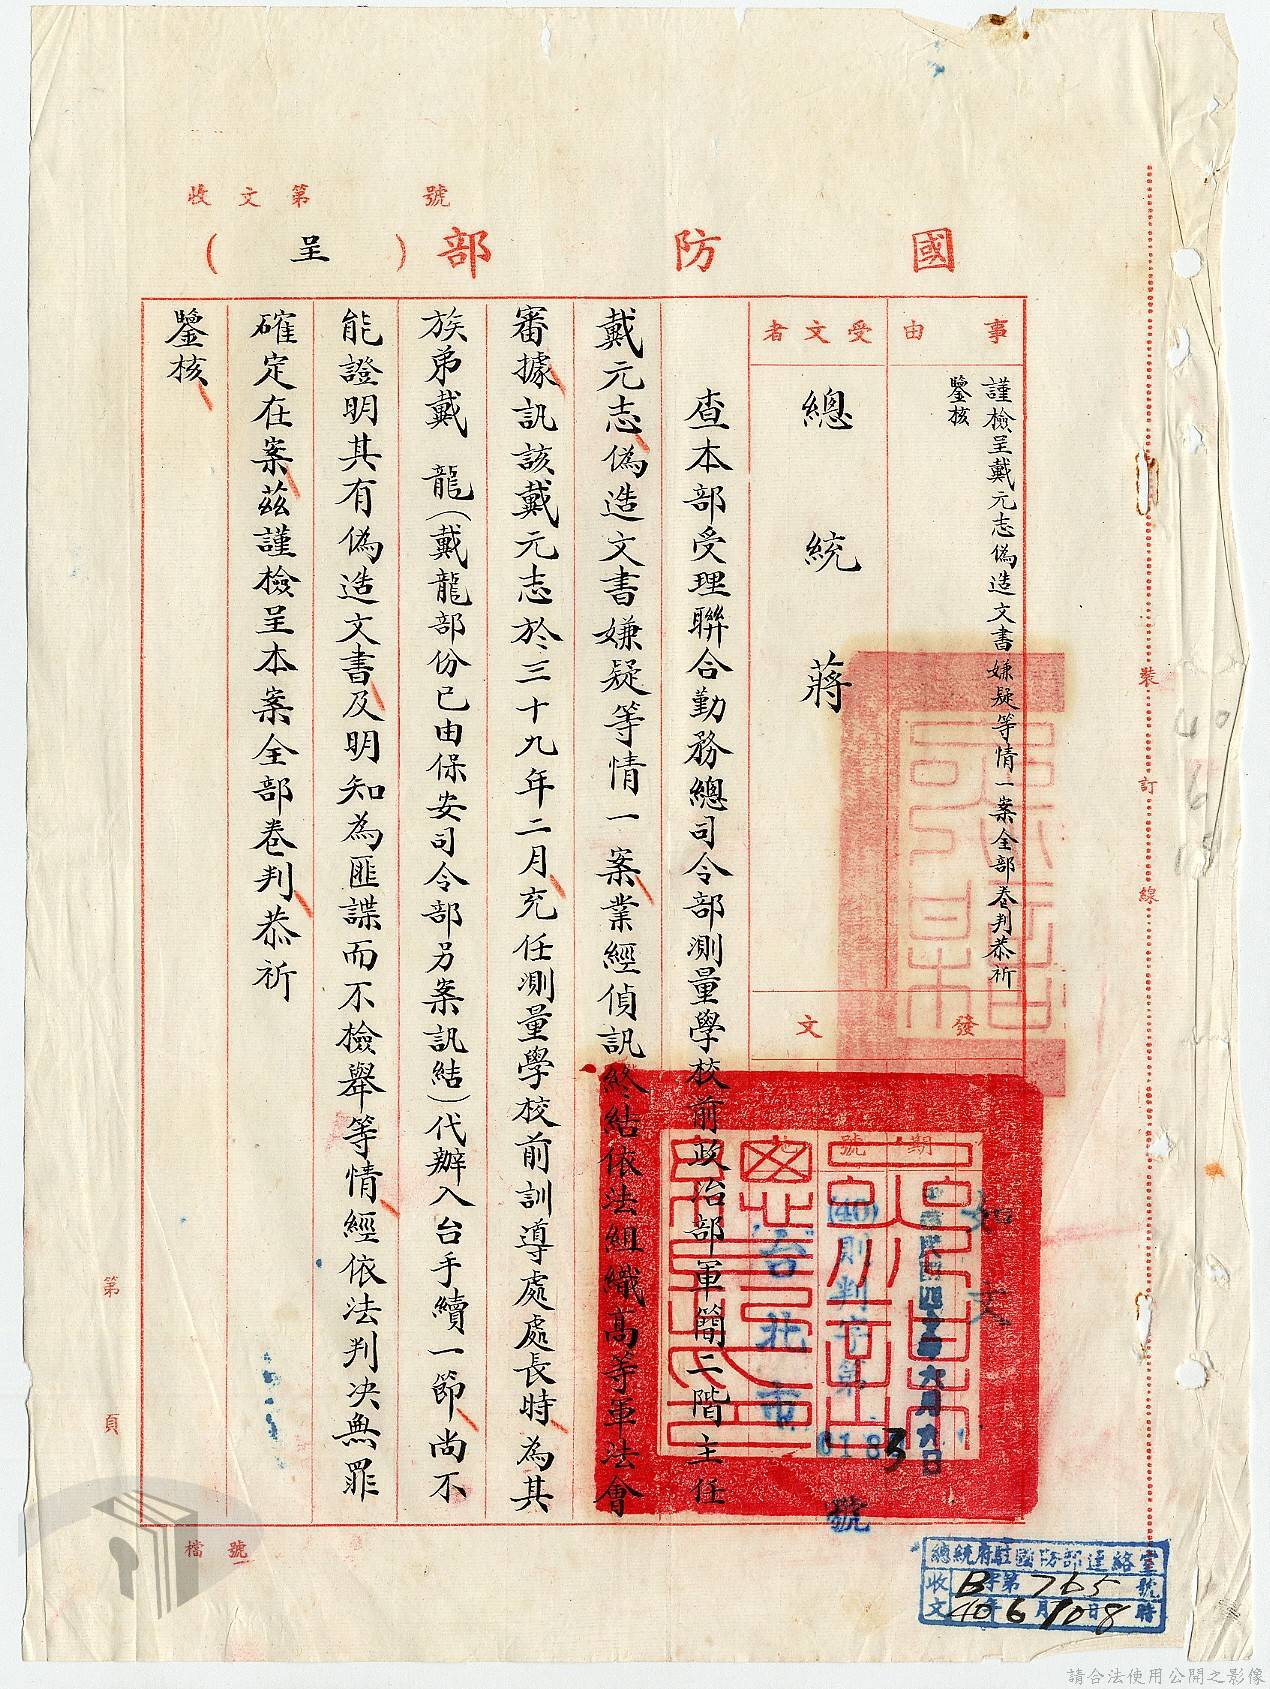 收文第　　　號
國防部（呈）
事由
謹檢呈戴元志偽造文書嫌疑等情一案全部卷判恭祈
鑒核
受文者
總統　蔣
發文
日期
字號
中華民國四十年六月九日
(40)則判字第
0183
號
台北市
如文
查本部受理聯合勤務總司令部測量學校前政治部軍簡二階主任
戴元志偽造文書嫌疑等情一案業經偵訊終結依法組織高等軍法會
審據訊該戴元志於三十九年二月充任測量學校前訓導處處長時為其
族弟戴　龍（戴龍部份已由保安司令部另案訊結）代辦入台手續一節尚不
能證明其有偽造文書及明知為匪諜而不檢舉等情經依法判決無罪
確定在案茲謹檢呈本案全部卷判恭祈
鑒核
裝
訂
線
第　　　頁
檔號
總統府駐國防部連絡室
收文
B字第765號
40年6月10日8時
40
6
請合法使用公開之影像